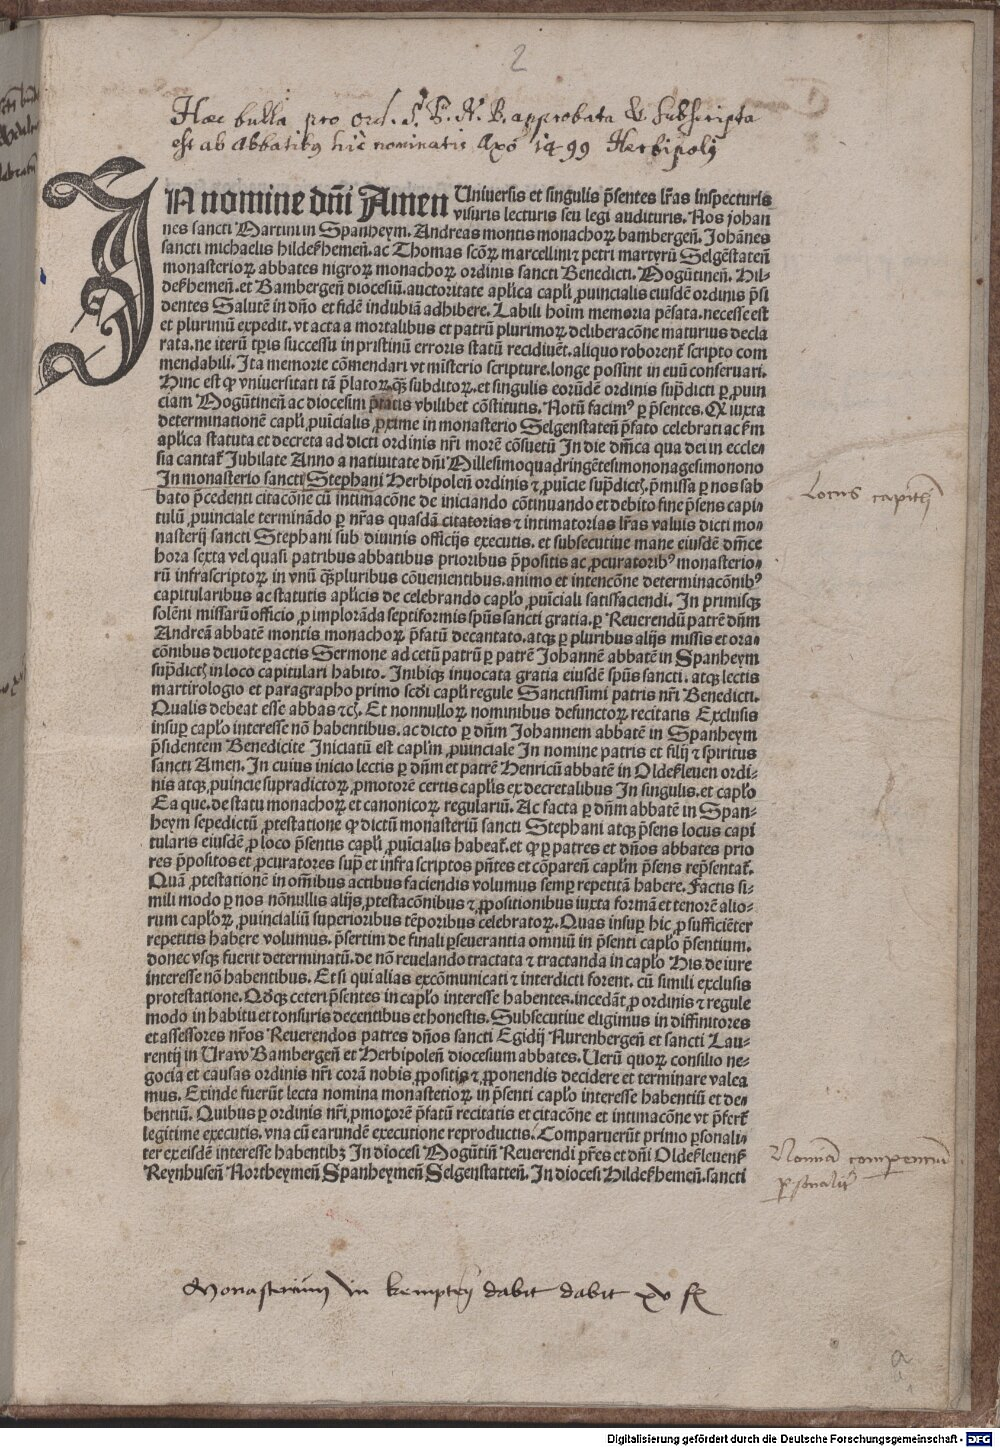 2
Haec bulla pro ord. S. P. N. B. approbata & subscripta
est ab Abbatibus hic nominatis Aō 1499 Herbipoly
IN nomine dn̄i Amen Uniuersis et singulis p̄sentes lr̄as inspecturis
visuris lecturis seu legi audituris. Nos johan
nes sancti Martini in Spanheym. Andreas montis monachoꝝ bambergen̄. Johānes
sancti michaelis hildeßhemen̄. ac Thomas scōꝝ marcellini ⁊ petri martyrū Selgēstateñ
monasterioꝝ abbates nigroꝝ monachoꝝ ordinis sancti Benedicti. Mogūtineñ. Hil-
deßhemeñ. et Bambergeñ diocesiū. auctoritate aplica capli ꝓuincialis eiusdē ordinis p̄si
dentes Salutē in dn̄o et fidē indubiā adhibere. Labili hoīm memoria pēsata. necesse est
et plurimū expedit. vt acta a mortalibus et patrū plurimoꝝ deliberacōne maturius decla
rata. ne iterū tp̄is successu in pristinū erroris statū recidiuēt. aliquo roborent᷑ scripto com
mendabili. Ita memorie cōmendari vt mīsterio scripture. longe possint in euū conseruari.
Hinc est ꝙ vniuersitati tā p̄latoꝝ qꝫ subditoꝝ. et singulis eorūdē ordinis sup̄dicti ꝑ ꝓuin
ciam Mogūtineñ ac diocesim p̄tatis vbilibet cōstitutis. Notū facimꝰ ꝑ p̄sentes. Qꝭ iuxta
determinationē capli ꝓuīcialis ꝓxime in monasterio Selgenstateñ p̄fato celebrati ac ẜm
aplica statuta et decreta ad dicti ordinis nr̄i morē cōsuetū In die dm̄ca qua dei in eccle-
sia cantat᷑ Jubilate Anno a natiuitate dn̄i Millesimoquadringētesimononagesimonono
In monasterio sancti Stephani Herbipoleñ ordinis ⁊ ꝓuīcie sup̄dictꝭ. p̄missa ꝑ nos sab
bato p̄cedenti citacōne cū intimacōne de iniciando cōtinuando et debito fine p̄sens capi-
tulū ꝓuinciale terminādo ꝑ nr̄as quasdā citatorias ⁊ intimatorias lr̄as valuis dicti mo-
nasterij sancti Stephani sub diuinis officijs executis. et subsecutiue mane eiusdē dm̄ce
hora sexta vel quasi patribus abbatibus prioribus p̄positis ac ꝓcuratoribꝰ monasterio-
rū infrascriptoꝝ in vnū qꝫpluribus cōuenientibus. animo et intencōne determinacōnibꝰ
capitularibus ac statutis aplicis de celebrando caplo ꝓuīciali satisfaciendi. In primisqꝫ
solēni missarū officio ꝓ implorāda septiformis sp̄us sancti gratia. ꝑ Reuerendū patrē dn̄m
Andreā abbatē montis monachoꝝ p̄fatū decantato. atqꝫ ꝑ pluribus alijs missis et ora-
cōnibus deuote ꝑactis Sermone ad cetū patrū ꝑ patrē Johannē abbatē in Spanheym
sup̄dictꝭ in loco capitulari habito. Inibiqꝫ inuocata gratia eiusdē sp̄us sancti. atqꝫ lectis
martirologio et paragrapho primo scd̄i capli regule Sanctissimi patris nr̄i Benedicti.
Qualis debeat esse abbas ⁊cꝭ. Et nonnulloꝝ nominibus defunctoꝝ recitatis Exclusis
insuꝑ caplo interesse nō habentibus. ac dicto ꝑ dn̄m Johannem abbatē in Spanheym
p̄sidentem Benedicite Iniciatū est caplm ꝓuinciale In nomine patris et filij ⁊ spiritus
sancti Amen. In cuius inicio lectis ꝑ dn̄m et patrē Henricū abbatē in Oldeßleuen ordi-
nis atqꝫ ꝓuincie supradictoꝝ ꝓmotorē certis caplis ex decretalibus In singulis. et caplo
Ea que. de statu monachoꝝ et canonicoꝝ regulariū. Ac facta ꝑ dn̄m abbatē in Span-
heym sepedictū ꝓtestatione ꝙ dictū monasteriū sancti Stephani atqꝫ p̄sens locus capi
tularis eiusdē ꝓ loco p̄sentis capli ꝓuīcialis habeat᷑. et ꝙ ꝑ patres et dn̄os abbates prio
res p̄positos et ꝓcuratores sup̄ et infra scriptos pn̄tes et cōpareñ caplm p̄sens rep̄sentat᷑.
Quā ꝓtestationē in om̄ibus actibus faciendis volumus semꝑ repetitā habere. Factis si-
mili modo ꝑ nos nōnullis alijs ꝓtestacōnibus ⁊ ꝓpositionibus iuxta formā et tenorē alio-
rum caploꝝ ꝓuincialiū superioribus tēporibus celebratoꝝ. Quas insuꝑ hic ꝓ sufficiēter
repetitis habere volumus. p̄sertim de finali ꝑseuerantia omniū in p̄senti caplo p̄sentium.
donec vsqꝫ fuerit determinatū. de nō reuelando tractata ⁊ tractanda in caplo His de iure
interesse nō habentibus. Et si qui alias excōmunicati ⁊ interdicti forent. cū simili exclusis
protestatione. Qd̄qꝫ ceteri p̄sentes in caplo interesse habentes. incedāt ꝓ ordinis ⁊ regule
modo in habitu et tonsuris decentibus et honestis. Subsecutiue eligimus in diffinitores
et assessores nr̄os Reuerendos patres dn̄os sancti Egidij Nurenbergeñ et sancti Lau-
rentij in Uraw Bambergeñ et Herbipoleñ diocesium abbates. Uerū quoꝝ consilio ne-
gocia et causas ordinis nr̄i corā nobis ꝓpositis ⁊ ꝓponendis decidere et terminare valea
mus. Exinde fuerūt lecta nomina monasterioꝝ in p̄senti caplo interesse habentiū et de-
bentiū. Quibus ꝑ ordinis nr̄i ꝓmotorē p̄fatū recitatis et citacōne et intimacōne vt p̄fert᷑
legitime executis. vna cū earundē executione reproductis. Comparuerūt primo ꝑsonali-
ter ex eisdē interesse habentibꝫ In diocesi Mogūtiñ Reuerendi pr̄es et dn̄i Oldeßleueñ
Reynhuseñ Northeymeñ Spanheymeñ Selgenstatteñ. In diocesi Hildeßhemeñ. sancti
Locus capitli
Nomina comparencium
personaliter
Monasterium in kempten dabit dabit xv fl
a
1
Digitalisierung gefördert durch die Deutsche Forschungsgemeinschaft - DFG